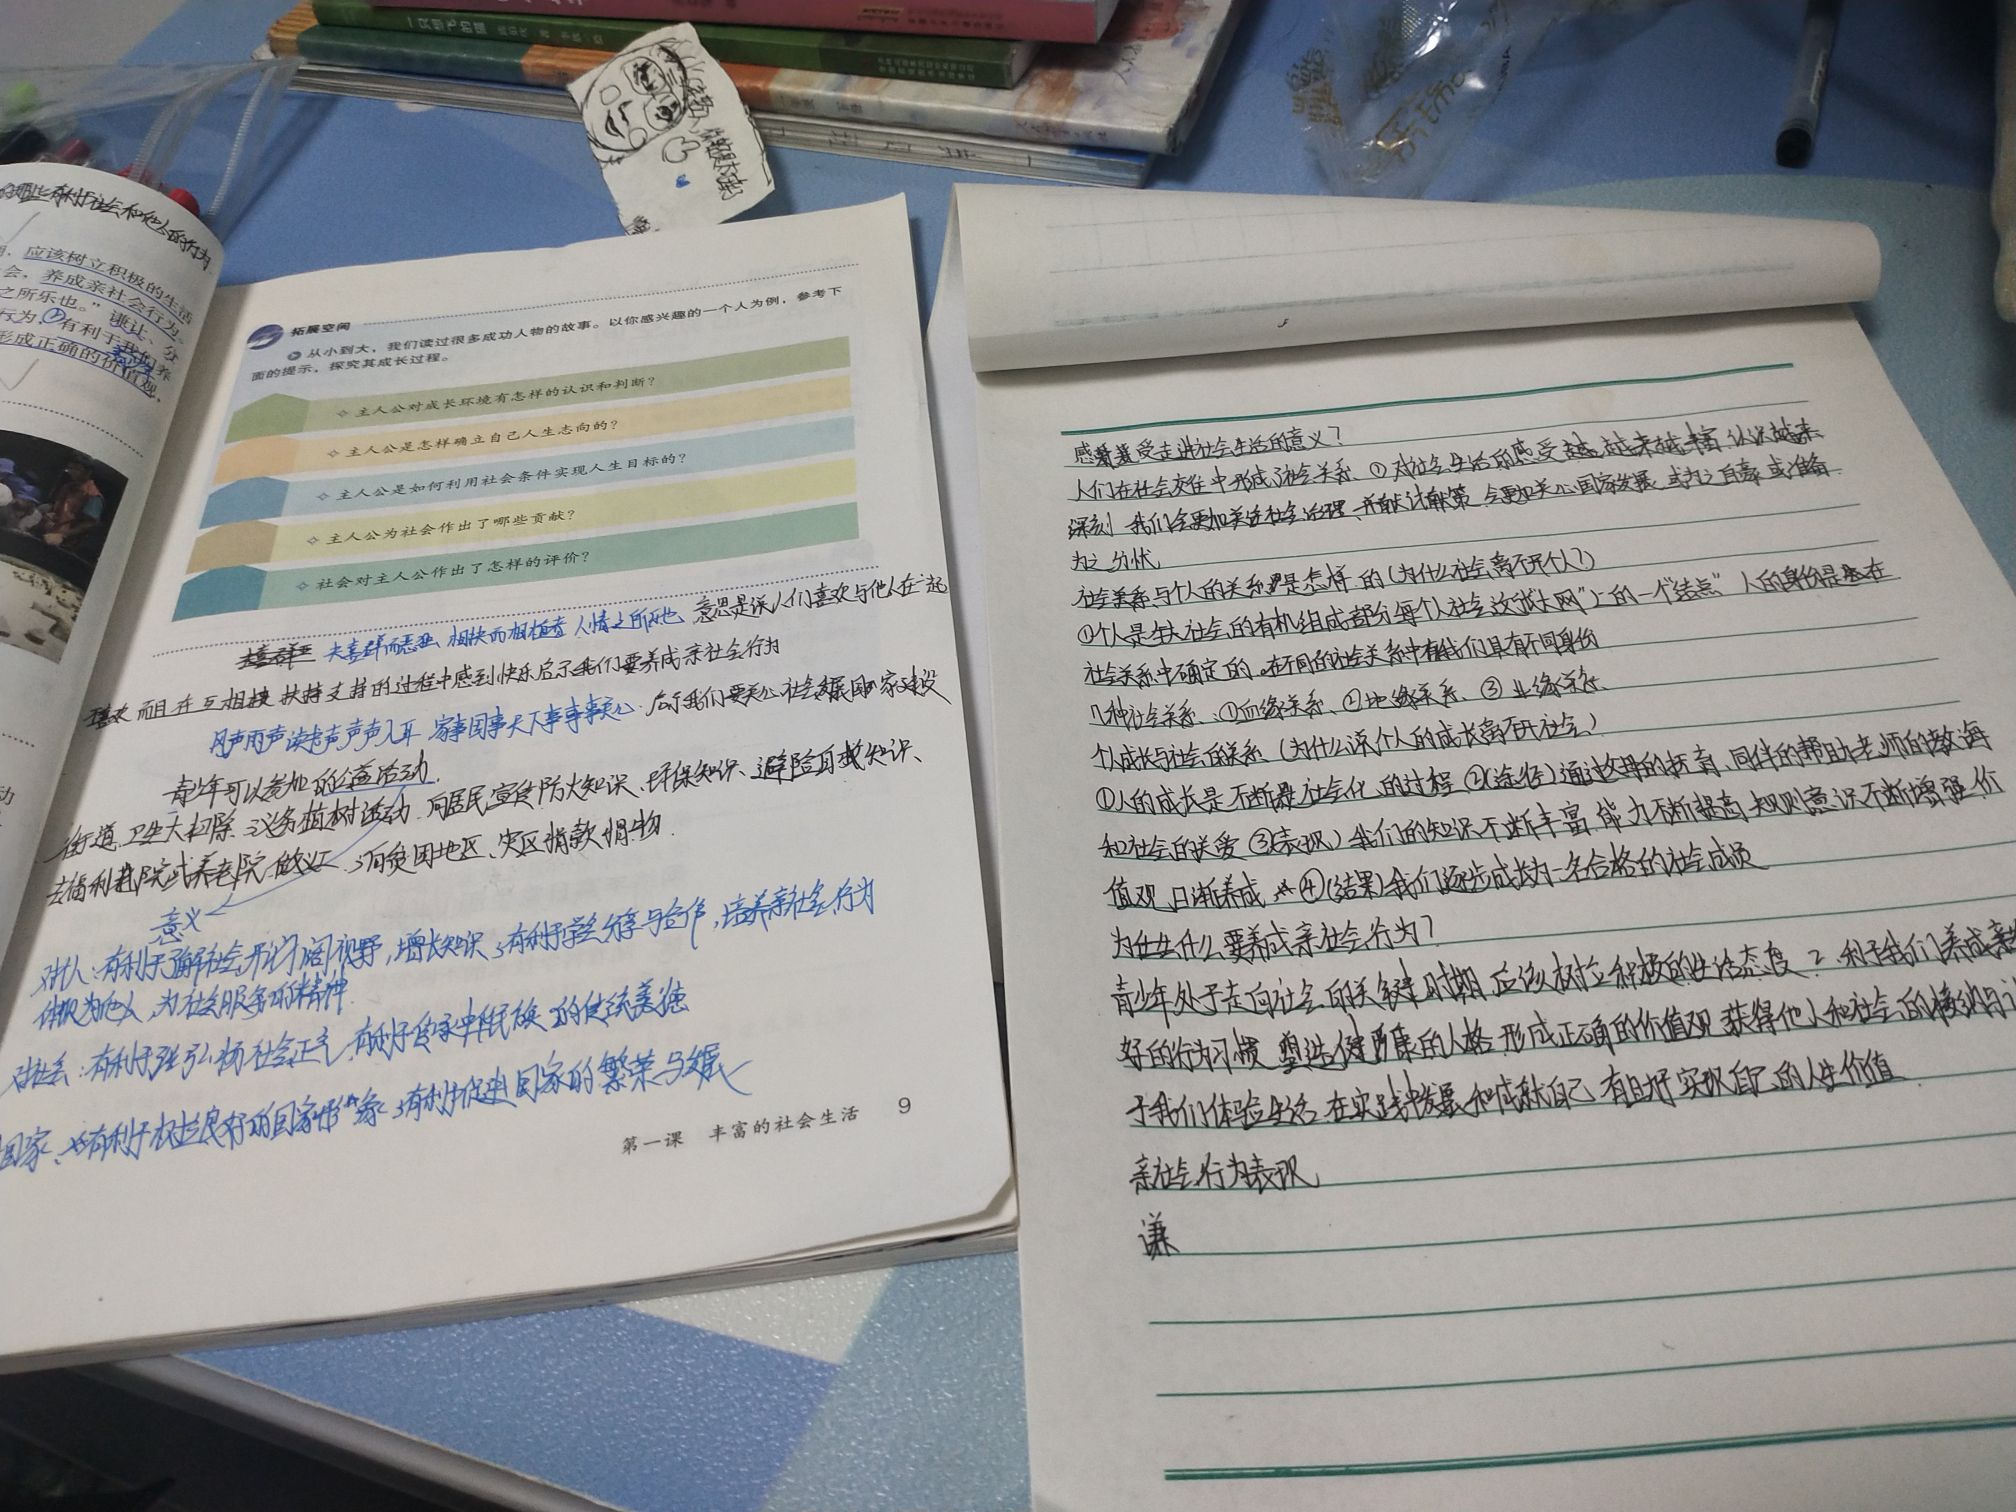 的哪些有利于社会和他人的行为
应该树立积极的生活
会，养成亲社会行为。
之所乐也。”谦让、分
行为，②有利于我们养
形成正确的价值观，
拓展空间
从小到大，我们读过很多成功人物的故事。以你感兴趣的一个人为例，参考下
面的提示，探究其成长过程。
主人公对成长环境有怎样的认识和判断？
主人公是怎样确立自己人生志向的？
主人公是如何利用社会条件实现人生目标的？
主人公为社会作出了哪些贡献？
社会对主人公作出了怎样的评价？
夫喜群而恶独 相扶而相植者 人情之所乐也 意思是说人们喜欢与他人在一起
而且在互相 扶持支持的过程中感到快乐启示我们要养成亲社会行为
风声雨声读书声声声入耳 家事国事天下事事事关心 启示我们要关心社会发展国家建设
青少年可以参加的公益活动
街道卫生大扫除、义务植树活动、向居民宣传防火知识、环保知识、避险自救知识、
去福利院或养老院做义工、向贫困地区、灾区捐款捐物
意义
对个人：有利于了解社会开阔视野，增长知识，有利于学会分享与合作，培养亲社会行为
体现为他人，为社会服务的精神
对社会：有利于弘扬社会正气 有利于传承中华民族的传统美德
国家、有利于树立良好的国家形象，有利于促进国家的繁荣与发展
第一课 丰富的社会生活 9
感受走进社会生活的意义？
人们在社会交往中形成了社会关系 ①对社会生活的感受越来越丰富 认识越来
深刻 我们会更加关注社会治理、并献计献策 会更加关心国家发展 或为之自豪 或准备
为之分忧
社会关系与个人的关系是怎样的（为什么社会离不开个人？）
①个人是社会的有机组成部分每个人社会这张“大网”上的一个“结点” 人的身份是在
社会关系中确定的。在不同的社会关系中我们具有不同身份
几种社会关系、①血缘关系、②地缘关系 ③业缘关系
个人成长与社会的关系（为什么说个人的成长离不开社会）
①人的成长是不断社会化的过程 ②（途径）通过父母的抚育、同伴的帮助老师的教诲
和社会的关爱 ③（表现）我们的知识不断丰富 能力不断提高 规则意识不断增强 价
值观日渐养成 ④（结果）我们逐步成长为一名合格的社会成员
为什么要养成亲社会行为？
青少年处于走向社会的关键时期 应该树立积极的生活态度 2 利于我们养成
好的行为习惯 塑造健康的人格 形成正确的价值观 获得他人和社会的接纳与
于我们体验生活 在实践中发展和成就自己 有且于实现自己的人生价值
亲社会行为表现
谦